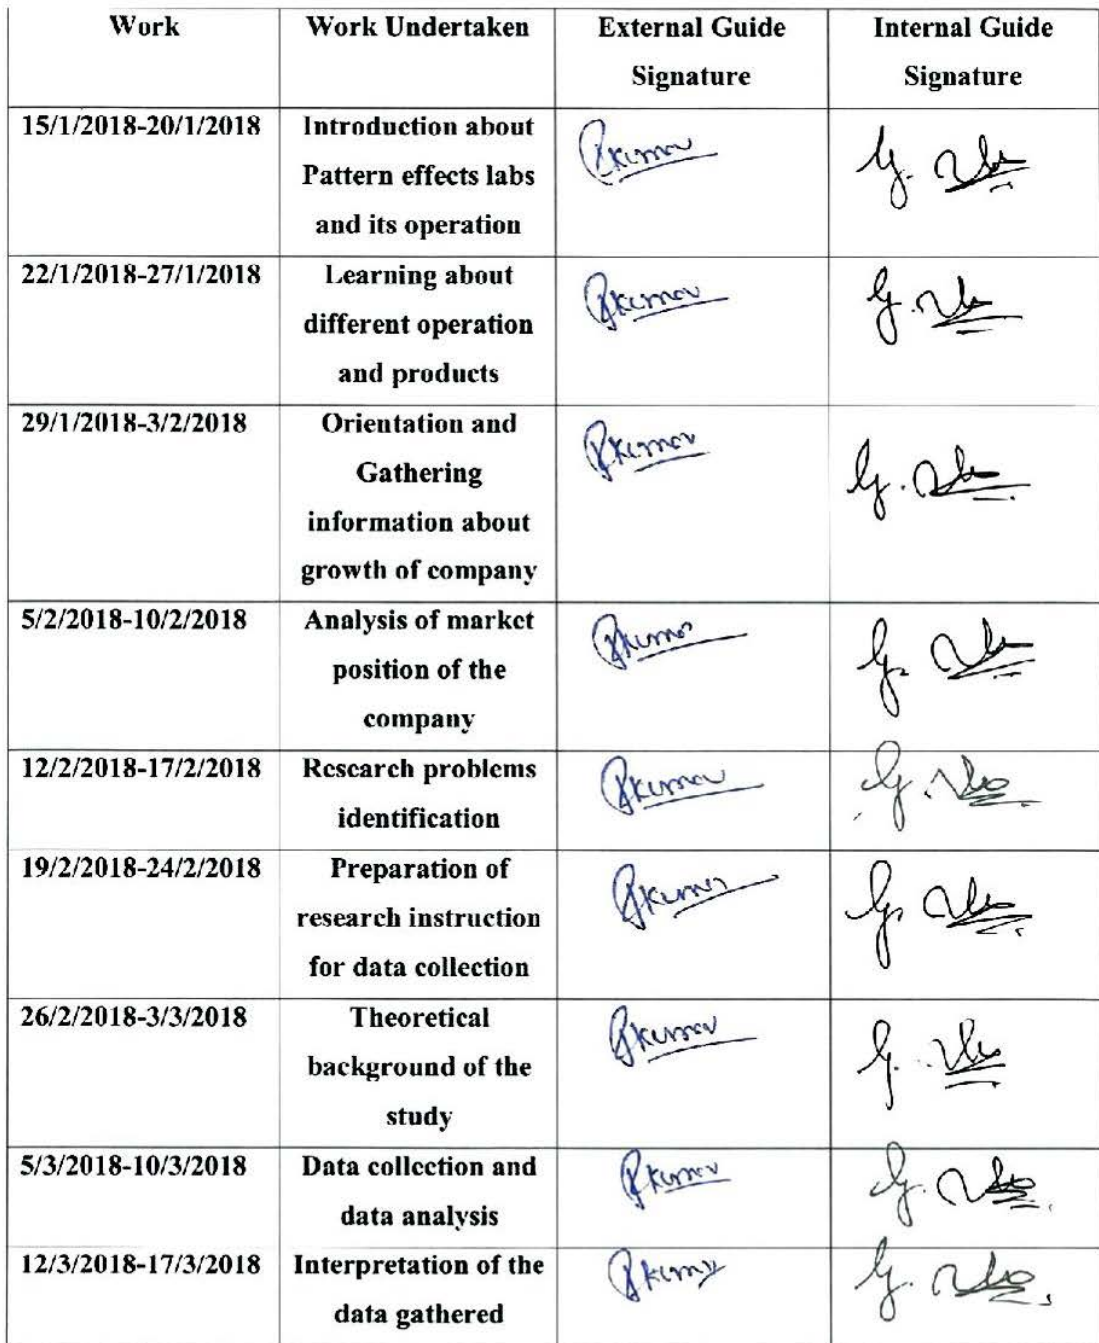 Work
Work Undertaken
External Guide
Signature
Internal Guide
Signature
15/1/2018-20/1/2018
Introduction about
Pattern effects labs
and its operation
22/1/2018-27/1/2018
Learning about
different operation
and products
29/1/2018-3/2/2018
Orientation and
Gathering
information about
growth of company
5/2/2018-10/2/2018
Analysis of market
position of the
company
12/2/2018-17/2/2018
Research problems
identification
19/2/2018-24/2/2018
Preparation of
research instruction
for data collection
26/2/2018-3/3/2018
Theoretical
background of the
study
5/3/2018-10/3/2018
Data collection and
data analysis
12/3/2018-17/3/2018
Interpretation of the
data gathered